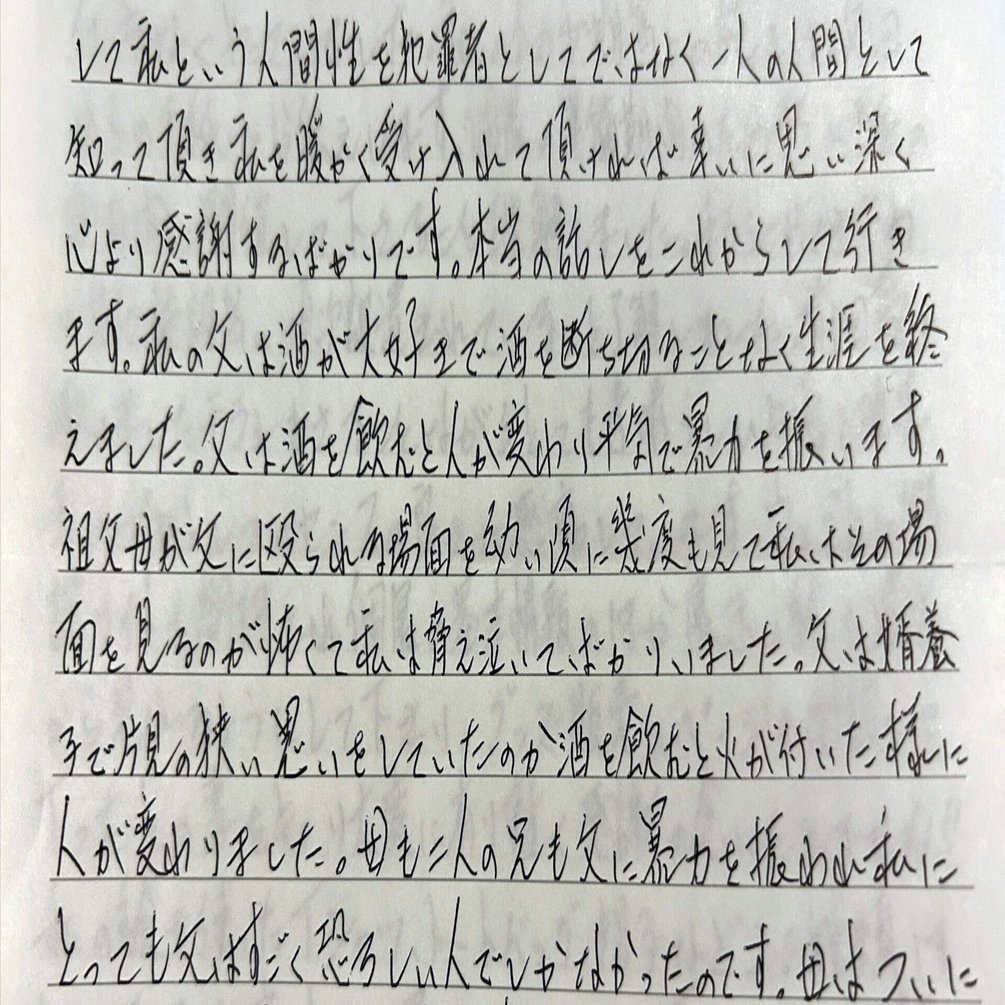 して私という人間性を犯罪者としてではなく一人の人間として
知って頂き私を暖かく受け入れて頂ければ幸いに思い深く
心より感謝するばかりです。本当の話しをこれからして行き
ます。私の父は酒が大好きで酒を断ち切ることなく生涯を終
えました。父は酒を飲むと人が変わり平気で暴力を振います。
祖父母が父に殴られる場面を幼い頃に幾度も見て私はその場
面を見るのが怖くて私は脅え泣いてばかりいました。父は婿養
子で片見の狭い思いをしていたのか酒を飲むと火が付いた様に
人が変わりました。母も二人の兄も父に暴力を振われ私に
とっても父はすごく恐ろしい人でしかなかったのです。母はついに